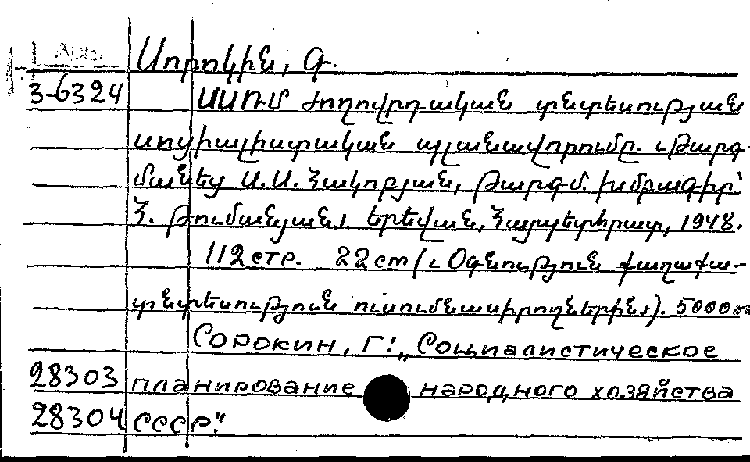 Սորոկին, Գ.
3-6324 ՍՍՌՄ ժողովրդական տնտեսության
սոցիալիստական պլանավորումը. Թարգ-
մանեց Ս.Ս. Հակոբյան, թարգմ. խմբագիր՝
Հ. Թումանյան։ Երեվան, Հայպետհրատ, 1948.
112 стр. 22 cm (Օգնություն քաղաքա-
տնտեսություն ուսումնասիրողներին). 5000
Сорокин, Г: „Социалистическое
28303 планирование народного хозяйства
28304 СССР."